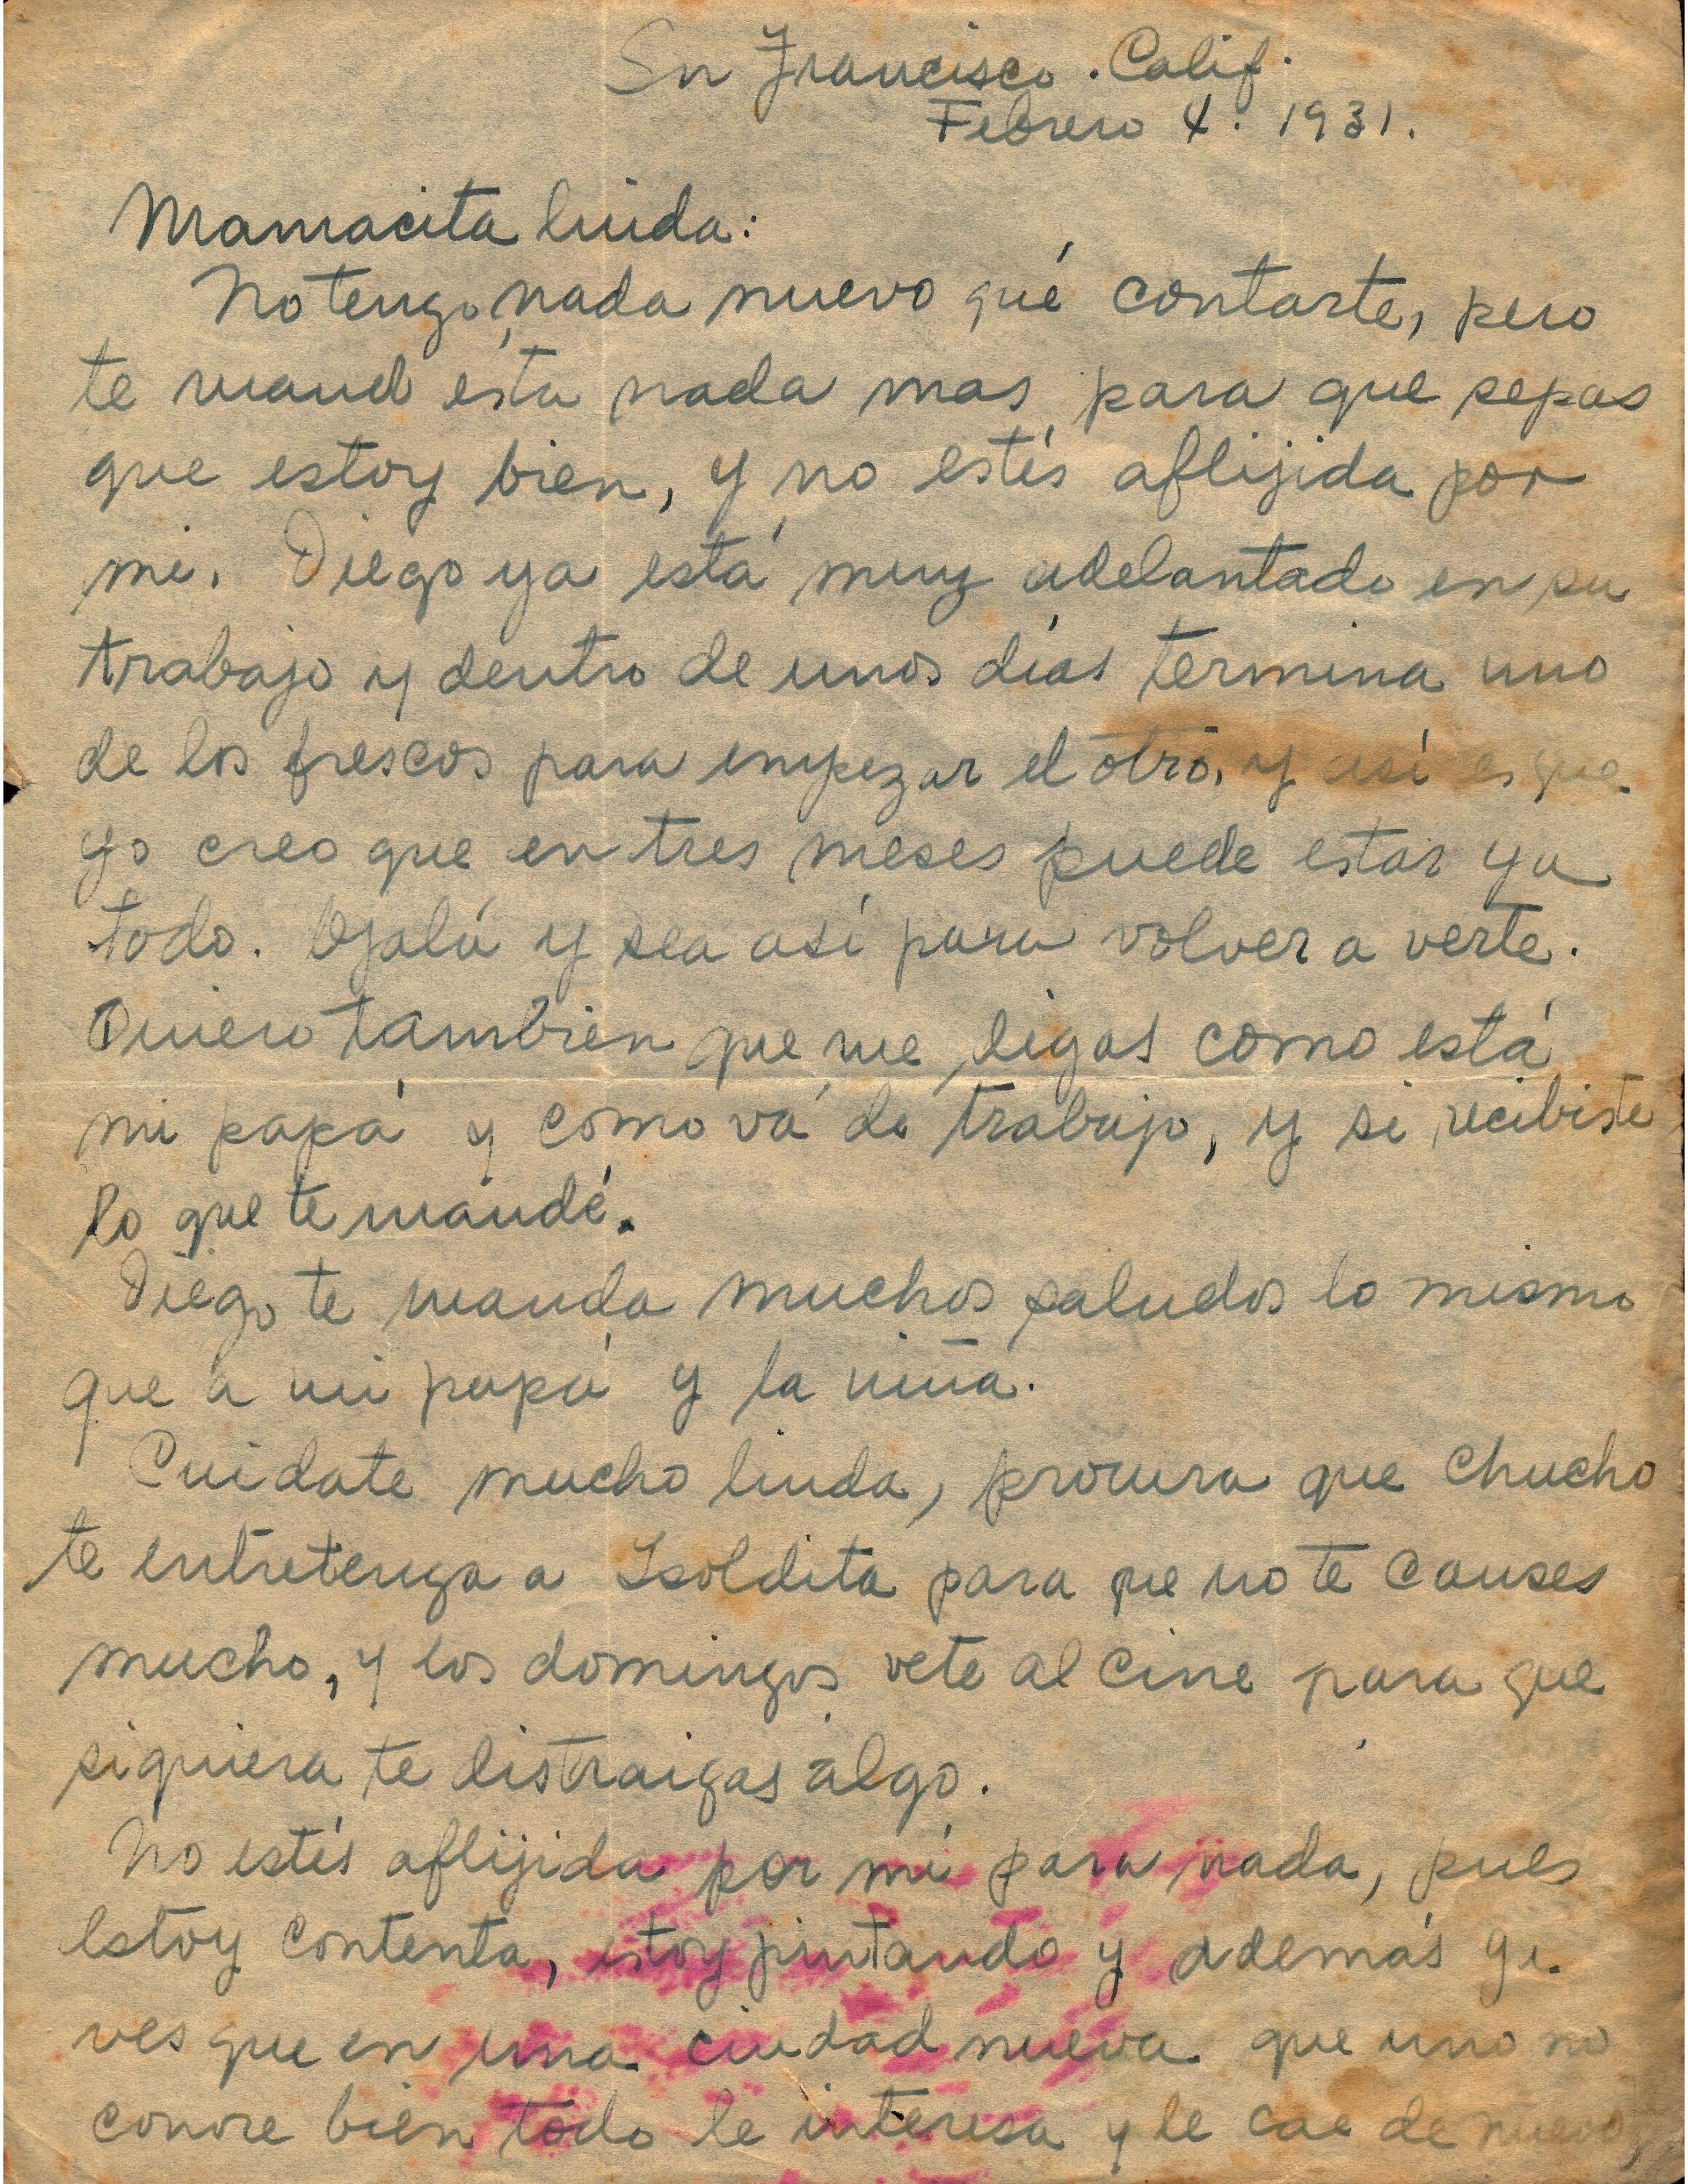 Sn Francisco. Calif.
Febrero 4. 1931.
Mamacita linda:
No tengo nada nuevo qué contarte, pero
te mando ésta nada mas para que sepas
que estoy bien, y no estés aflijida por
mi. Diego ya está muy adelantado en su
trabajo y dentro de unos días termina uno
de los frescos para empezar el otro, y así es que
yo creo que en tres meses puede estar ya
todo. Ojalá y sea así para volver a verte.
Quiero tambien que me digas como está
mi papá y como vá de trabajo, y si recibiste
lo que te mandé.
Diego te manda muchos saludos lo mismo
que a mi papá y la niña.
Cuidate mucho linda, procura que Chucho
te entretenga a Isoldita para que no te canses
mucho, y los domingos vete al cine para que
siquiera te distraigas algo.
No estés aflijida por mí para nada, pues
estoy contenta, estoy pintando y además ya
ves que en una ciudad nueva que uno no
conoce bien todo le interesa y le cae de nuevo,